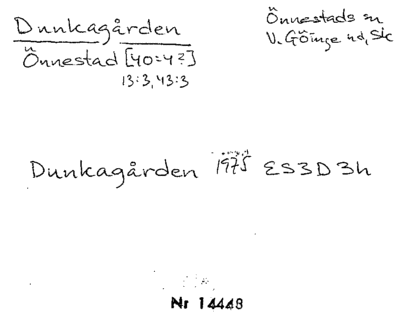 Dunkagården
Önnestad [40=4?]
13:3, 43:3
Önnestads sn
V. Göinge hd, Sk
Dunkagården 1975 ES3D3h
Nr 14448